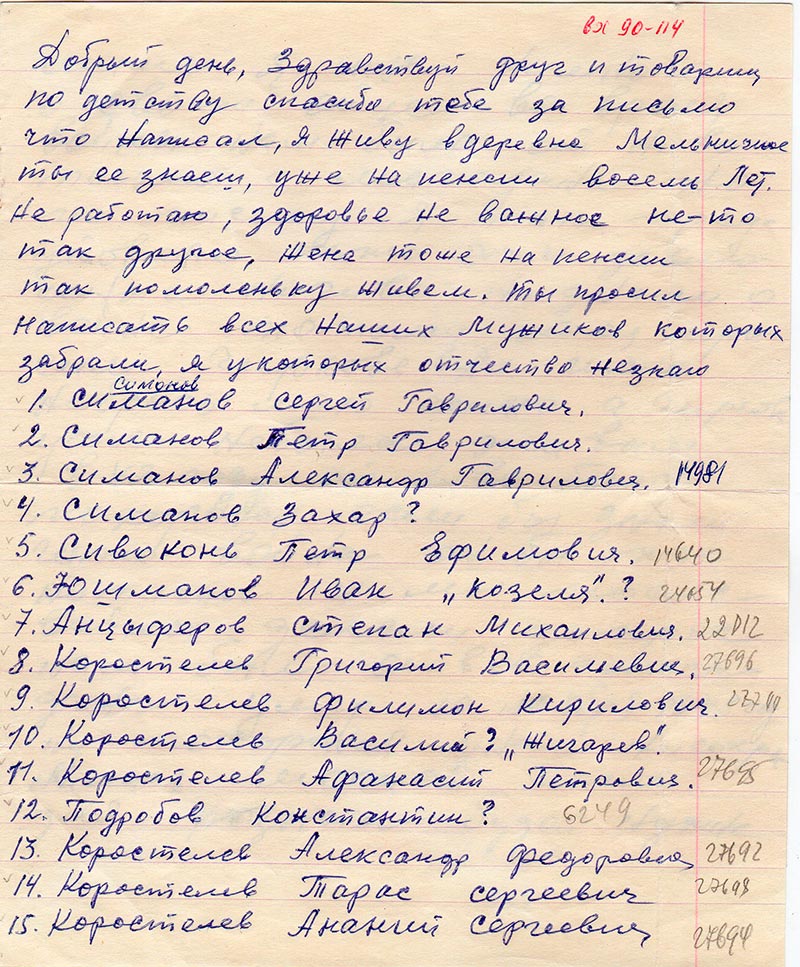 вх 90-114
Добрый день, Здравствуй друг и товарищ
по детству спасибо тебе за письмо
что написал, я живу в деревне Мельничное
ты ее знаеш, уже на пенсии восемь лет.
не работаю, здоровье не важное не-то
так другое, жена тоже на пенсии
так помоленьку живем. ты просил
написать всех наших мужиков которых
забрали, я у которых отчество незнаю
Симонов
1. Симанов Сергей Гаврилович.
2. Симанов Петр Гаврилович.
3. Симанов Александр Гаврилович. 14981
4. Симанов Захар?
5. Сивоконь Петр Ефимович. 14640
6. Юшманов Иван „Козеля". ? 24654
7. Анцыферов Степан Михаилович.
8. Коростелев Григорий Василиевич. 27696
9. Коростелев Филимон Кирилович.
10. Коростелев Василий? „Жигарев".
11. Коростелев Афанасий Петрович. 27685
12. Подробов Константин? 6249
13. Коростелев Александр Федорович 27692
14. Коростелев Тарас Сергеевич 27698
15. Коростелев Ананий Сергеевич 27694